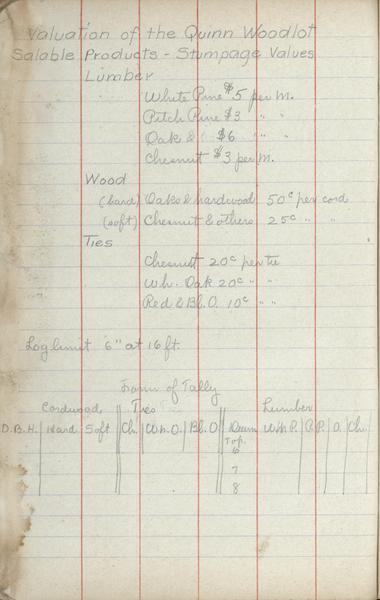 Valuation of the Quinn Woodlot
Salable Products - Stumpage Values
Lumber
White Pine $5 per M.
Pitch Pine $3 " "
Oak & $6 " "
Chesnut $3 per M.
Wood
(hard) Oaks & hardwood 50c per cord
(soft) Chesnut & others 25c " "
Ties
Chesnut 20c per tie
Wh. Oak 20c " "
Red & Bl. O. 10c " "
Log limit 6" at 16 ft.
Form of Tally
Cordwood Ties Lumber
D.B.H. Hard Soft Ch. Wh. O. Bl. O Diam Wh P. P.P. O. Ch.
Top.
6
7
8